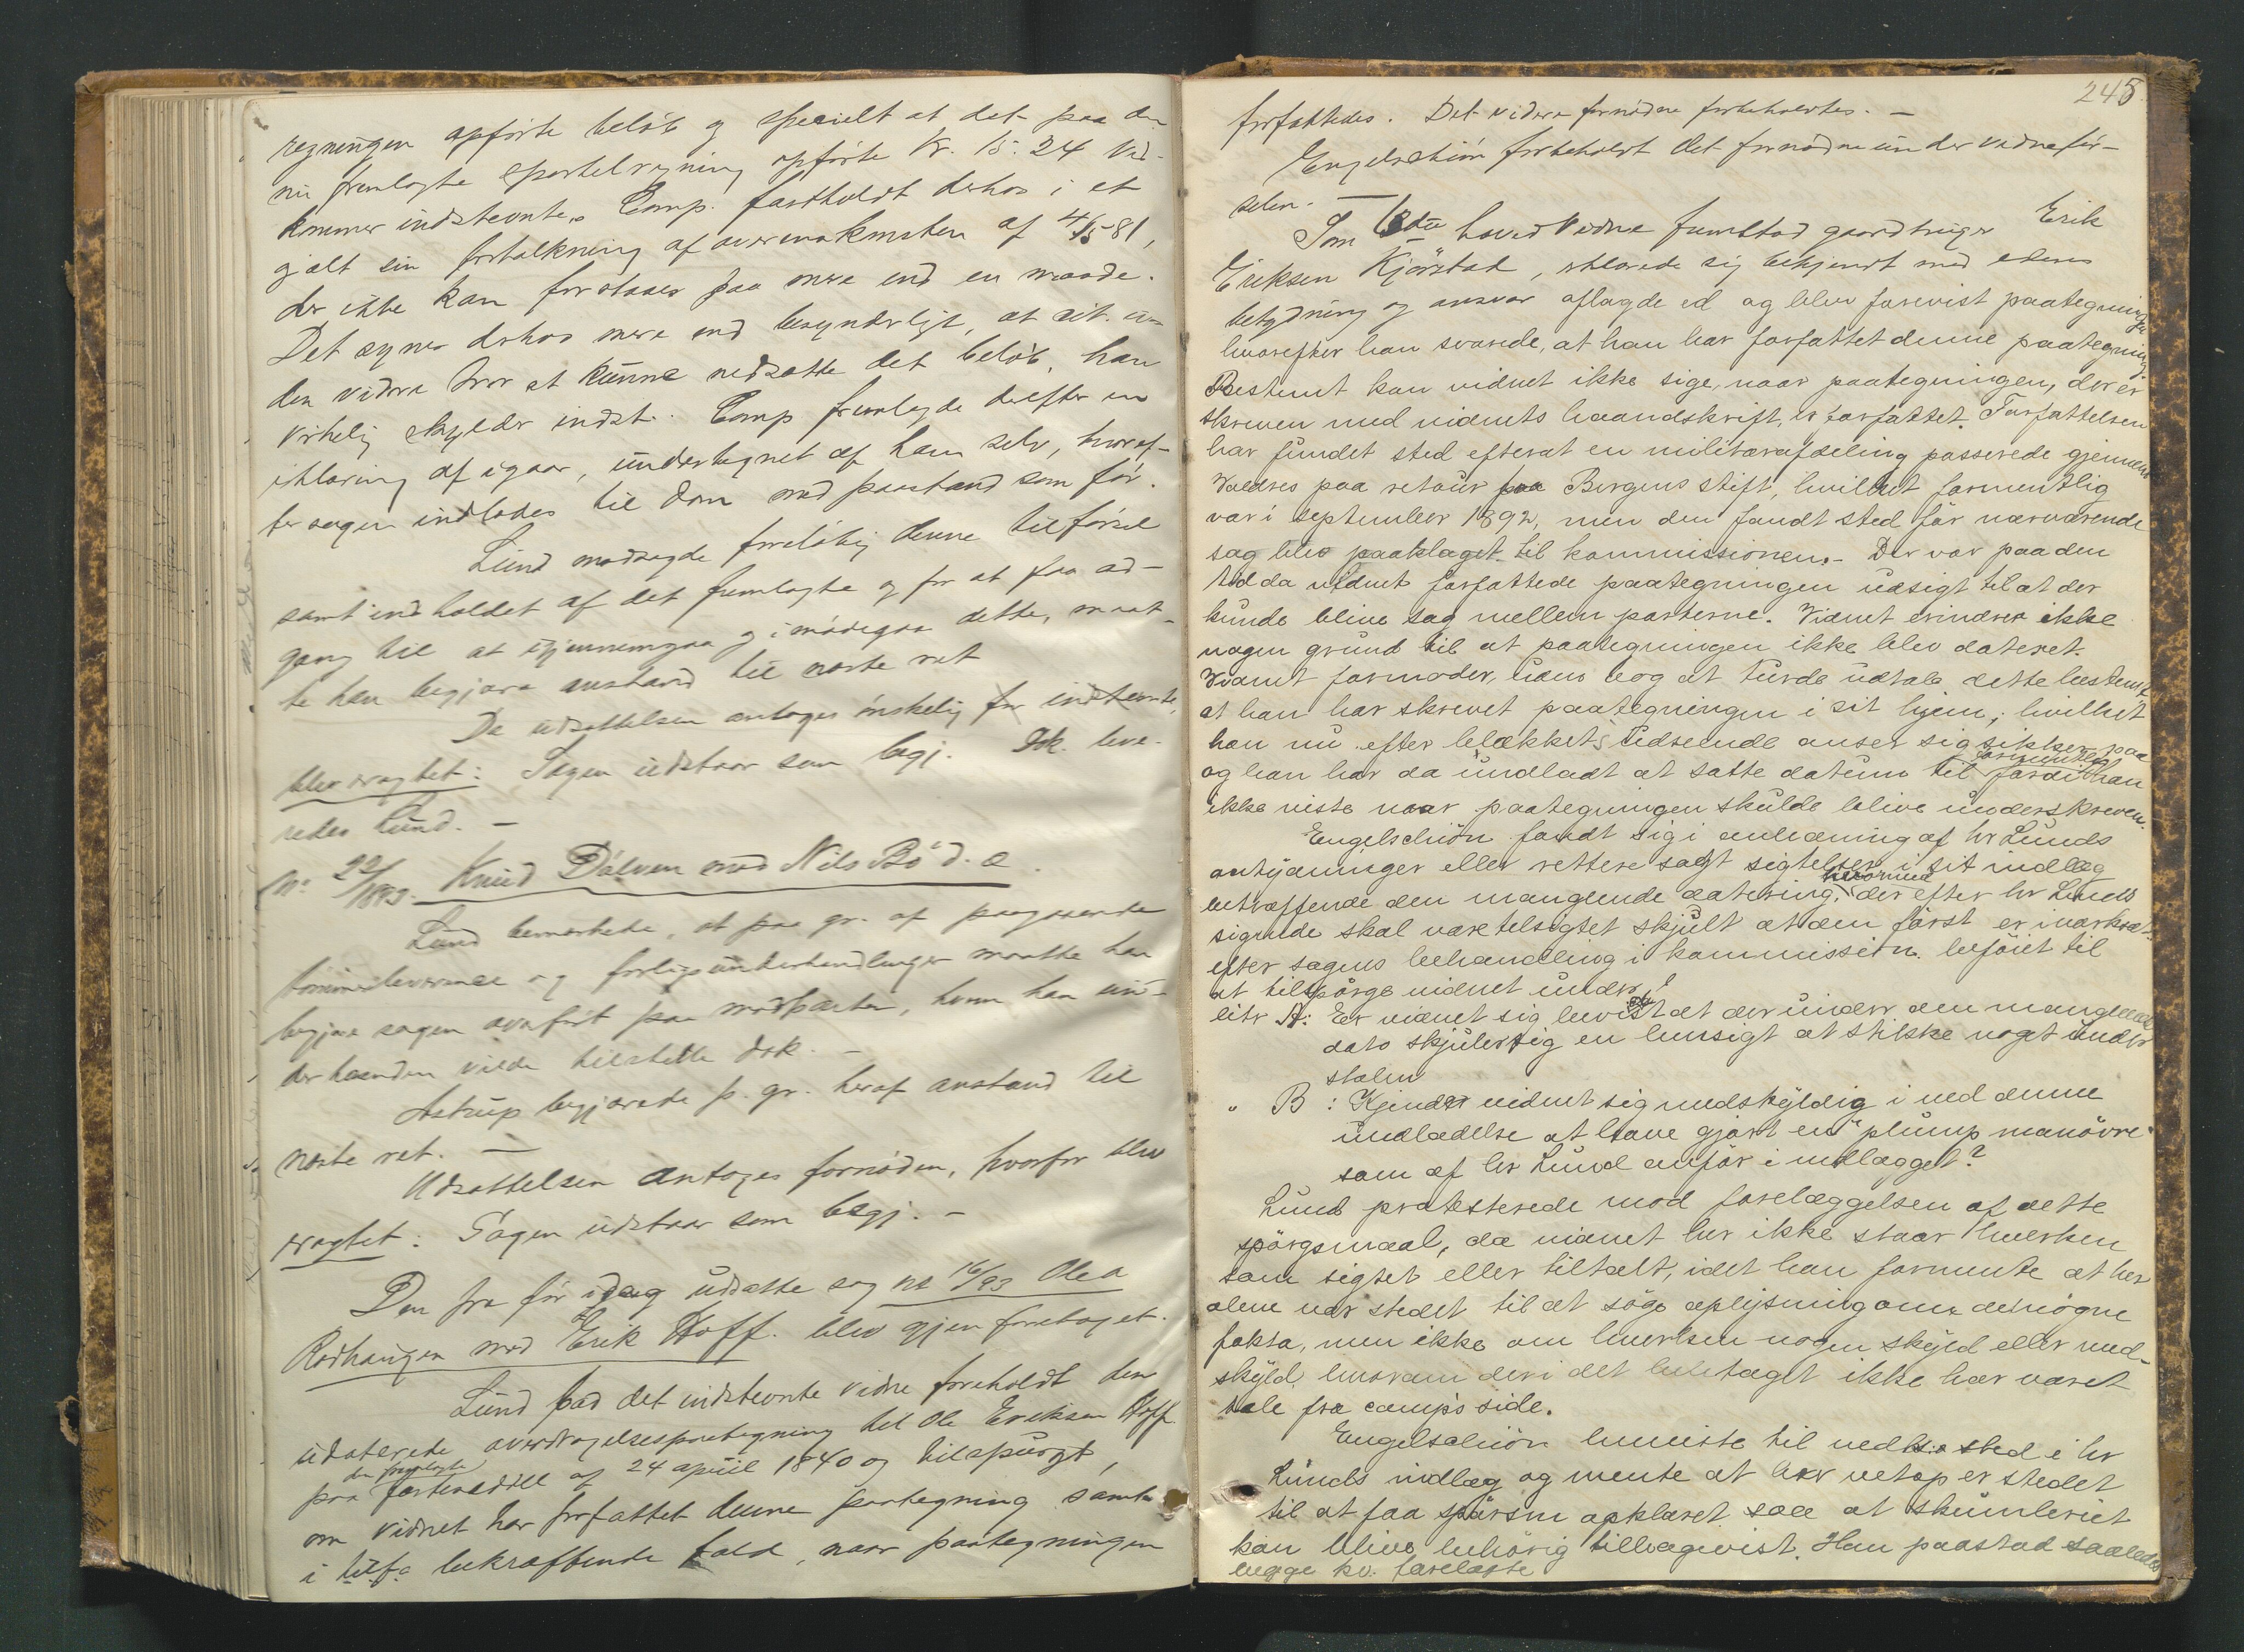 regningen opförte belöb og specielt at det paa den
nu fremlagte sportelregning opförte Kr. 15.24 ved-
kommer indstevnte. Comp. fastholdt derhos i et
og alt sin fortolkning af overenskmsten af 4/5 81,
der ikke kan forstaaes paa mere end en maade.
Det synes derhos mere end besynderligt, at cit. uden
den videre tror at kunne nedsætte det belöb, han
virkelig skylder indst. Comp. fremlagde derefter en
erklæring af igaar, undertegnet af ham selv, hvoref-
ter sagen indlodes til dom med paastand som för.
Lund modsagde foreløbig denne tilförsel
samt indholdet af det fremlagte og for at faa ad-
gang til at gjennemgaa og imödegaa dette, maat-
te han begjære anstand til næste ret
Da udsættelsen antages önskelig for indstevnte,
blev eragtet: Sagen udstaar som begj. Dok. leve-
redes Lund. —
No 22/1893. Knud Dölven mod Nils Bö d. æ.
Lund bemærkede, at paa gr. af paagaaende
og forligsunderhandlinger maatte han
begjære sagen overfört paa modparten, hvem han un-
der haanden vilde tilstille dok. —
Astrup begjærede p. gr. heraf anstand til
næste ret. —
Udsættelsen antages fornöden, hvorfor blev
eragtet: Sagen udstaar som begj. —
Den fra för idag udsatte sag No 16/93 Ole a
Rødhaugen mod Erik Hoff. blev gjenforetaget.
Lund bad det indstevnte vidne foreholdt den
udaterede overdragelsespaategning til Ole Eriksen Hoff
den fremlagte
paa fæsteseddel af 24 april 1840 og tilspurgt,
om vidnet har forfattet denne paategning samt
i tilf. bekræftende fald, naar paategningen
245
forfattedes. Det videre fornödne forbeholdtes. —
Engelschiön forbeholdt det fornödne under vidneför-
selen. —
Som hovedvidne fremstod gaardbruger Erik
Eriksen Kjörstad, erklærede sig bekjendt med edens
betydning og ansvar aflagde ed og blev forevist paategningen
hvorefter han svarede, at han har forfattet denne paategning.
Bestemt kan vidnet ikke sige, naar paategningen, der er
skreven med vidnets haandskrift, er forfattet. Forfattelsen
har fundet sted efterat en militærafdeling passerede gjennem
Valdres paa retour fra Bergens stift, hvilket formentlig
var i september 1892, men den fandt sted för nærværende
sag blev paaklaget til kommissionen. — Der var paa den
tid da vidnet forfattede paategningen udsigt til at der
kunde blive sag mellem parterne. Vidnet erindrer ikke
nogen grund til at paategningen ikke blev dateret.
Vidnet formoder, uden dog at turde udtale dette bestemt,
at han har skrevet paategningen i sit hjem, hvilket
han nu efter blækkets udseende anser sig sikker paa
formentlig
og han har da undladt at sætte datum til fordi han
ikke viste naar paategningen skulde blive underskreven.
Engelschiön fandt sig i anledning af hr Lunds
antydninger eller rettere sagt sigtelser i sit indlæg
hvormed
betræffende den manglende datering, der efter hr Lunds
sigende skal være tilsigtet skjult at den först er iværksat
efter sagens behandling i kommission. beföiet til
at tilspörge vidnet under
litr A: Er vidnet sig bevist at der under den manglende
dato skjuler sig en hensigt at stikke noget under
stolen
" B: Kjender vidnet sig medskyldig i ved denne
undladelse at have gjort en "plump manövre"
som af hr Lund anför i indlægget?
Lund protesterede mod forelæggelsen af dette
spörgsmaal, da vidnet her ikke staar hverken
som sigtet eller tiltalt, idet han formente at her
alene var stedet til at söge oplysning om de nögne
fakta, men ikke om hverken nogen skyld eller med-
skyld, hvorom der i det heletaget ikke har været
tale fra comp's side.
Engelschiön henviste til vedk. sted i hr
Lunds indlæg og mente at her netop er stedet
til at faa spörsm opklaret saa at skumleriet
kan blive behörig tilbagevist. Han paastod saaledes
begge kv. forelagte